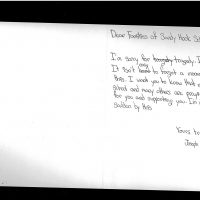 Dear Families of Sandy Hook S
I'm sorry for tragedy. I
It isn't easy to forget a mem
this. I want you to know that m
school and many others are pray
for you and supporting you. I'm
sadden by this
Yours tr
Joseph